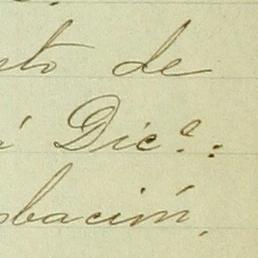 sto de
á Dice:
obación,